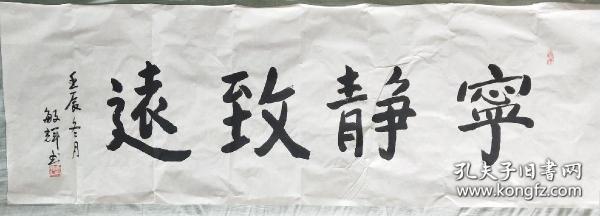 寧静致遠
壬辰冬月
敏輝书
孔夫子旧书网
www.kongfz.com